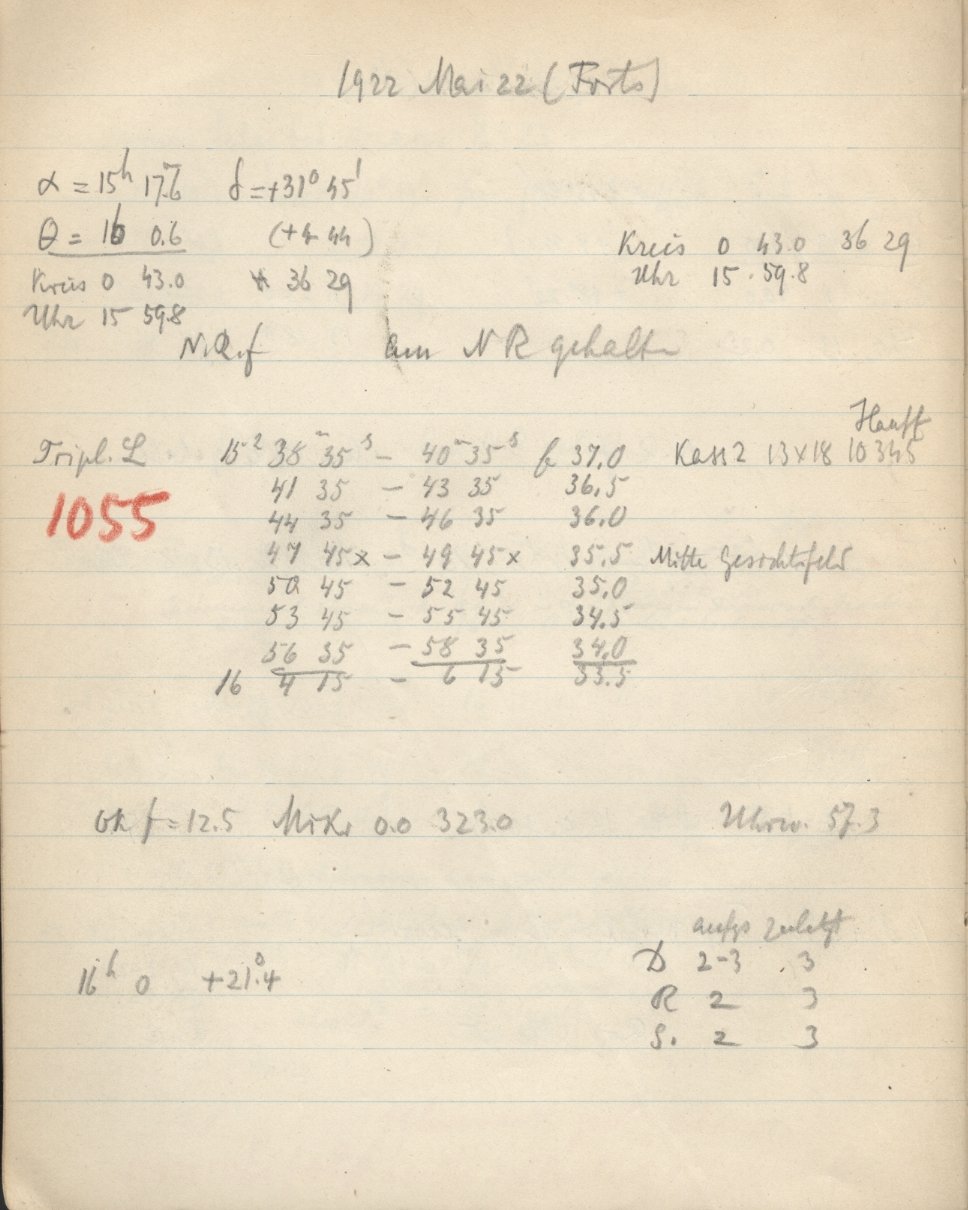 1922 Mai 22 (Forts)
α = 15h 17.6m δ = +31° 45'
θ = 16 0.6 (+4 44)
Kreis 0 43.0 36 29
Uhr 15 59.8
Kreis 0 43.0 36 29
Uhr 15 59.8
am NR gehalten
Hauff
Tripl. L 15h 38m 35s – 40m 35s f 37.0 Kass 2 13x18 10345
1055
41 35 – 43 35 36.5
44 35 – 46 35 36.0
47 45x – 49 45x 35.5 Mitte Gesichtsfeld
50 45 – 52 45 35.0
53 45 – 55 45 34.5
56 35 – 58 35 34.0
16 4 15 – 6 15 33.5
f = 12.5 Mikr 0.0 323.0 Uhrw. 57.3
anfgs zuletzt
D 2-3 3
16h 0 +21°.4
R 2 3
S. 2 3